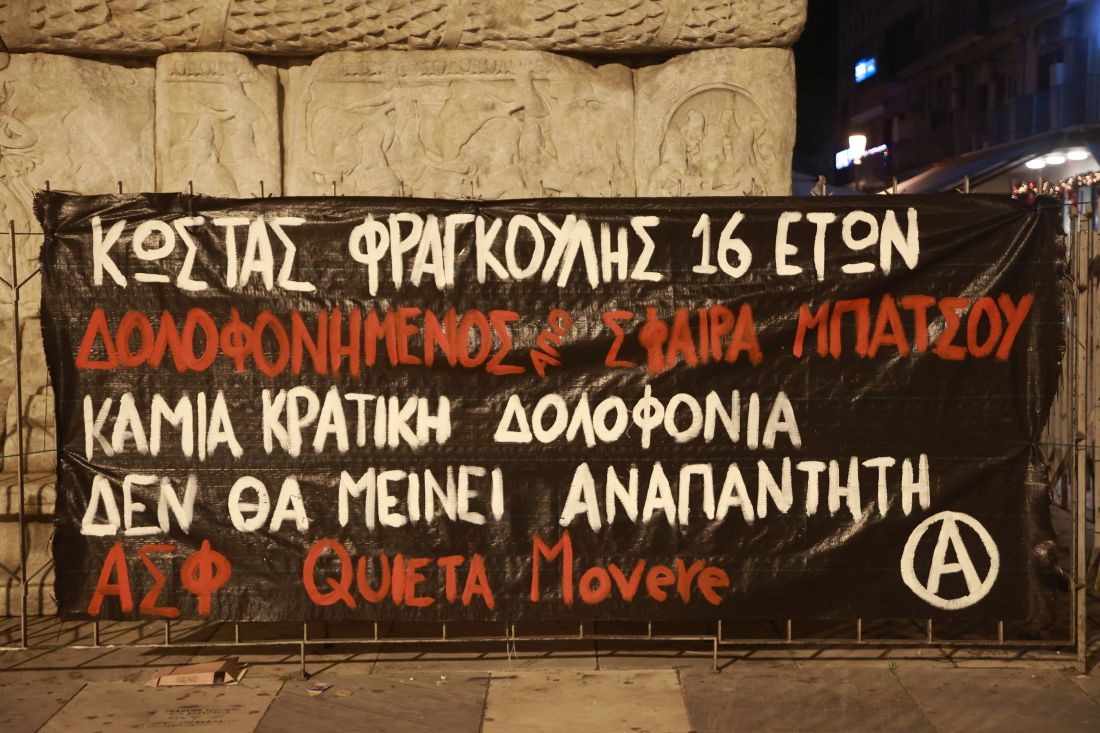 ΚΩΣΤΑΣ ΦΡΑΓΚΟΥΛΗΣ 16 ΕΤΩΝ
ΔΟΛΟΦΟΝΗΜΕΝΟΣ ΑΠΟ ΣΦΑΙΡΑ ΜΠΑΤΣΟΥ
ΚΑΜΙΑ ΚΡΑΤΙΚΗ ΔΟΛΟΦΟΝΙΑ
ΔΕΝ ΘΑ ΜΕΙΝΕΙ ΑΝΑΠΑΝΤΗΤΗ
ΑΣΦ QUIETA MOVERE
Α